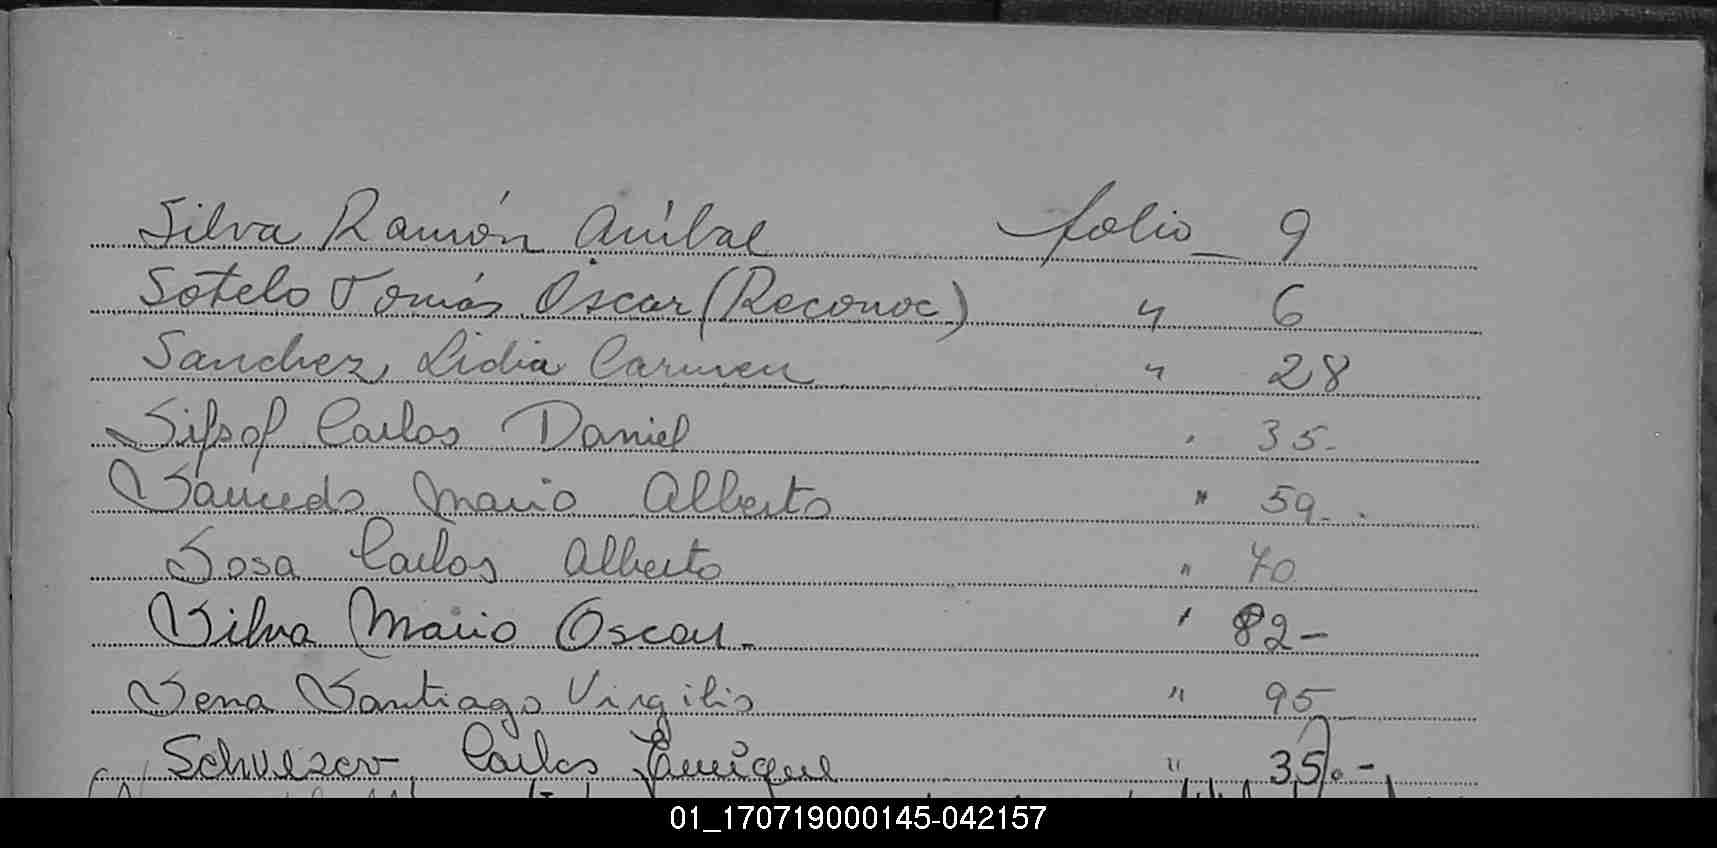 Silva Ramón Aníbal folio 9
Sotelo Tomás Oscar (Reconoc) " 6
Sanchez, Lidia Carmen " 28
Carlos Daniel " 35.
Mario Alberto " 59.
Sosa Carlos Alberto " 70
Silva Mario Oscar. " 82-
Sena Santiago Virgilio " 95
Carlos Enrique " 35.-
01_170719000145-042157